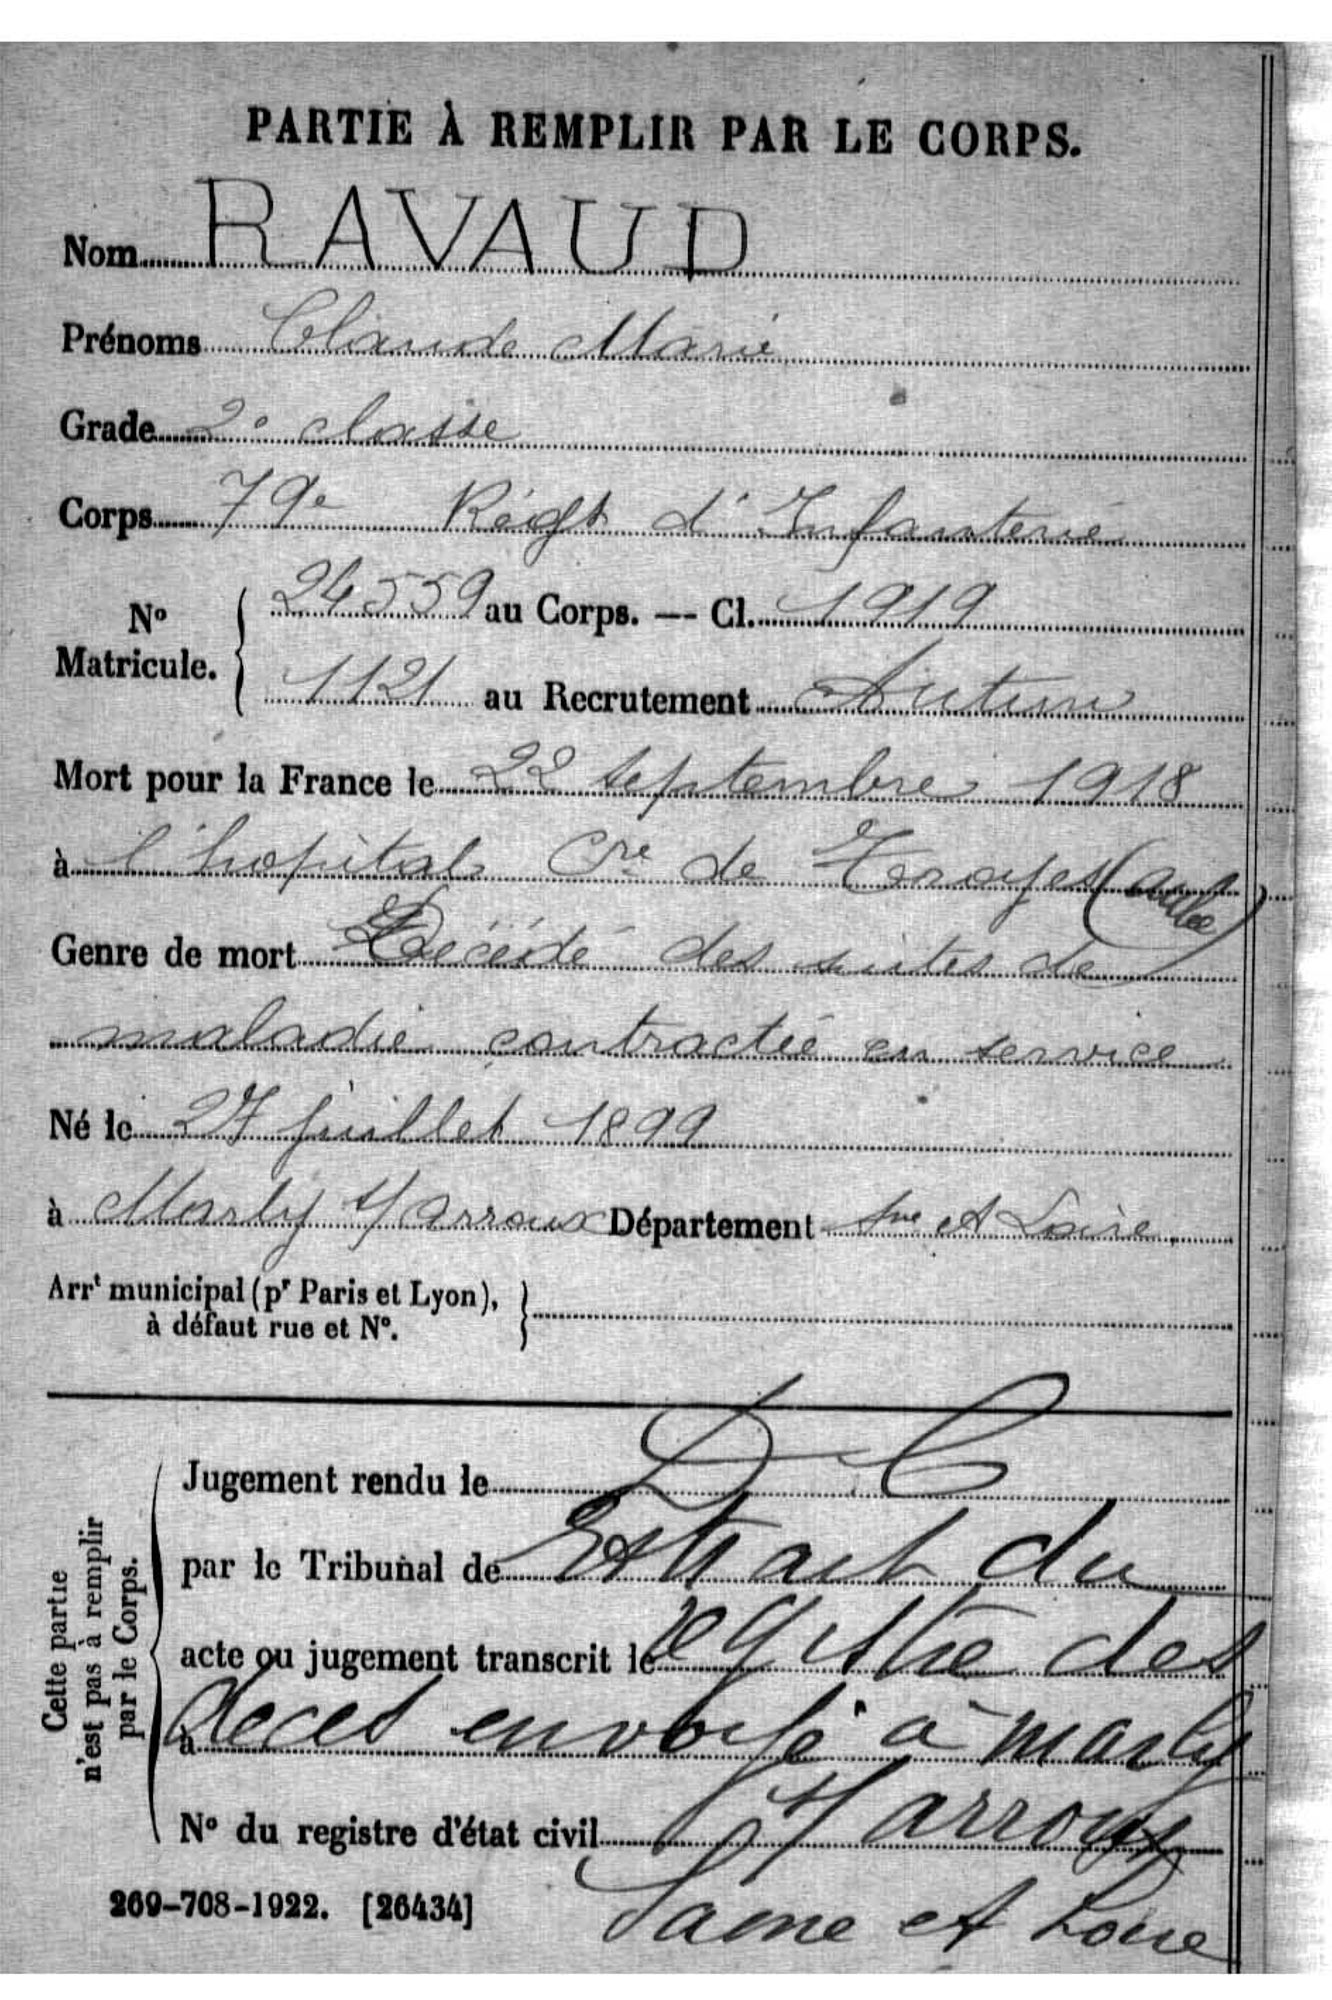 PARTIE À REMPLIR PAR LE CORPS.
Nom RAVAUD
Prénoms Claude Marie
Grade 2e classe
Corps 79e Régt d'Infanterie
No Matricule. { 24559 au Corps. — Cl. 1919
1121 au Recrutement Autun
Mort pour la France le 22 septembre 1918
à l'hopital Cre de Troyes (Aube)
Genre de mort Décédé des suites de
maladie contractée en service
Né le 27 juillet 1899
à Marly s/ Arroux Département Sne et Loire
Arrt municipal (pr Paris et Lyon), }
à défaut rue et No.
Cette partie
n'est pas à remplir
par le Corps.
Jugement rendu le D.C
par le Tribunal de Extrait du
acte ou jugement transcrit le registre des
à deces envoyé à Marly
No du registre d'état civil s/ Arroux
Saone et Loire
269-708-1922. [26434]